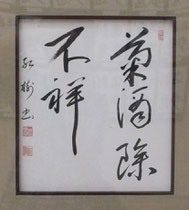 菊酒除
不祥